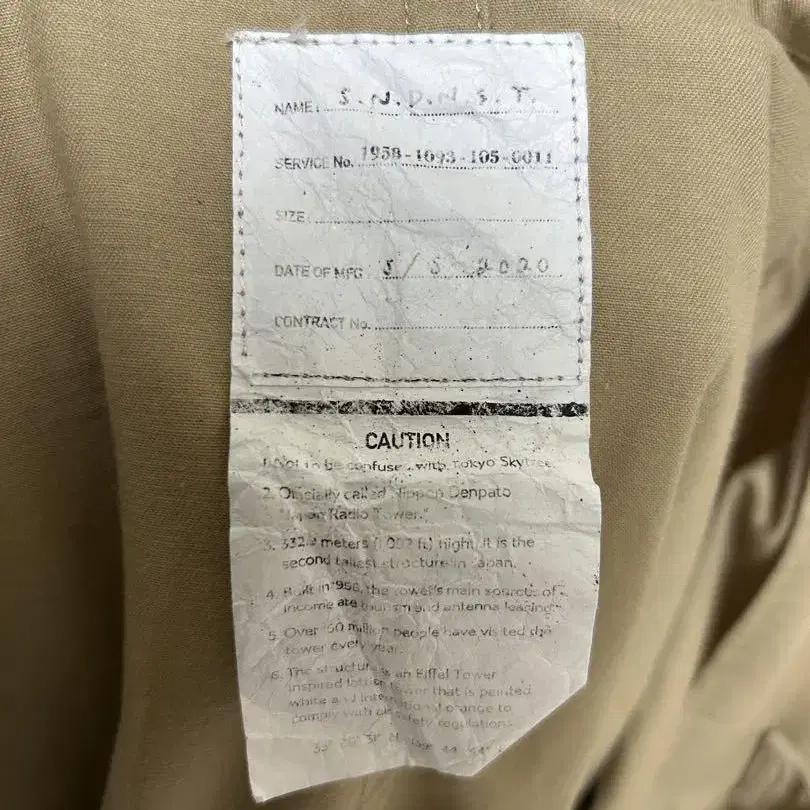 NAME: S.N.D.N.S.T.
SERVICE No. 1958-1093-105-0011
SIZE
DATE OF MFG 5/5 2020
CONTRACT No.
CAUTION
1. Not to be confuse with Tokyo Skytree
2. Officially called Nippon Denpato
"Japan Radio Tower."
3. 332.9 meters (1,092 ft) hight, it is the
second tallest structure in Japan.
4. Built in 1958, the towel's main sources of
income are tourism and antenna leasing
5. Over 150 million people have visited the
tower every year.
6. The structure is an Eiffel Tower
inspired lattice tower that is painted
white and international orange to
comply with air safety regulations